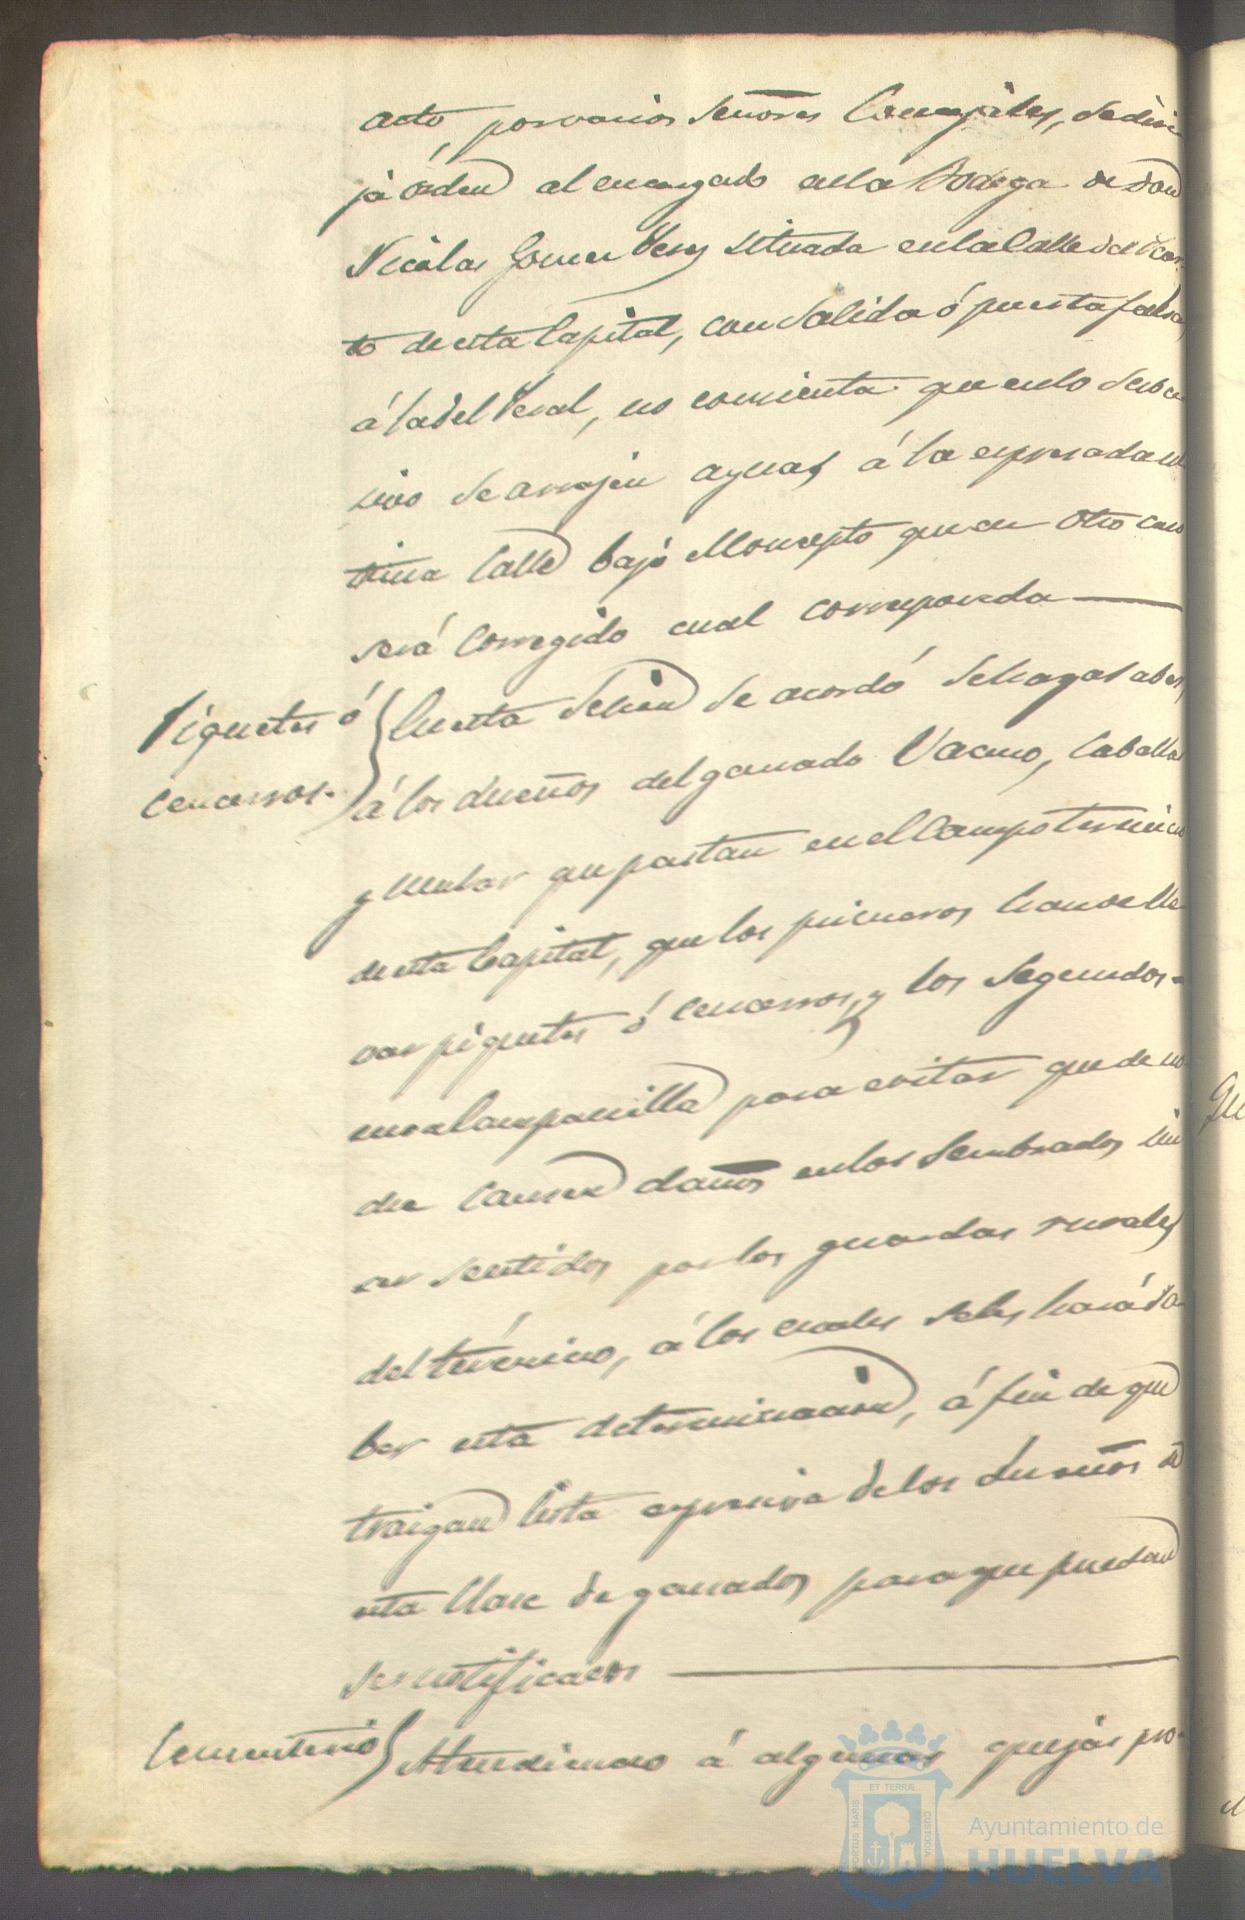 acto, por varios Señores Concejales, se diri
ja órden al encargado en la Bodega de don
Nicolas Gomez situada en la Calle del
to de esta Capital, con salida ó puerta falsa,
á la del Peral, no consienta que en lo suce
sivo se arrojen aguas á la expresada úl
tima Calle bajo el concepto que en otro caso
será corregido cual corresponda
Piquetes ó
cencerros.
Cuenta se acordó se haga saber,
á los dueños del ganado Vacuno, Caballar
y Mular que pastan en el Campo término
de esta Capital, que los primeros han de lle
var piquetes ó cencerros, y los segundos
una Campanilla para evitar que de no
che causen daños en los Sembrados sin
ser sentidos por los guardas rurales
del término, á los cuales se les hará sa
ber esta determinacion, á fin de que
traigan lista expresiva de los dueños de
esta Clase de ganados, para que puedan
ser notificados
Cementerio
Atendiendo á algunas quejas pro
PORTUS MARIS ET TERRÆ CUSTODIA
Ayuntamiento de
HUELVA